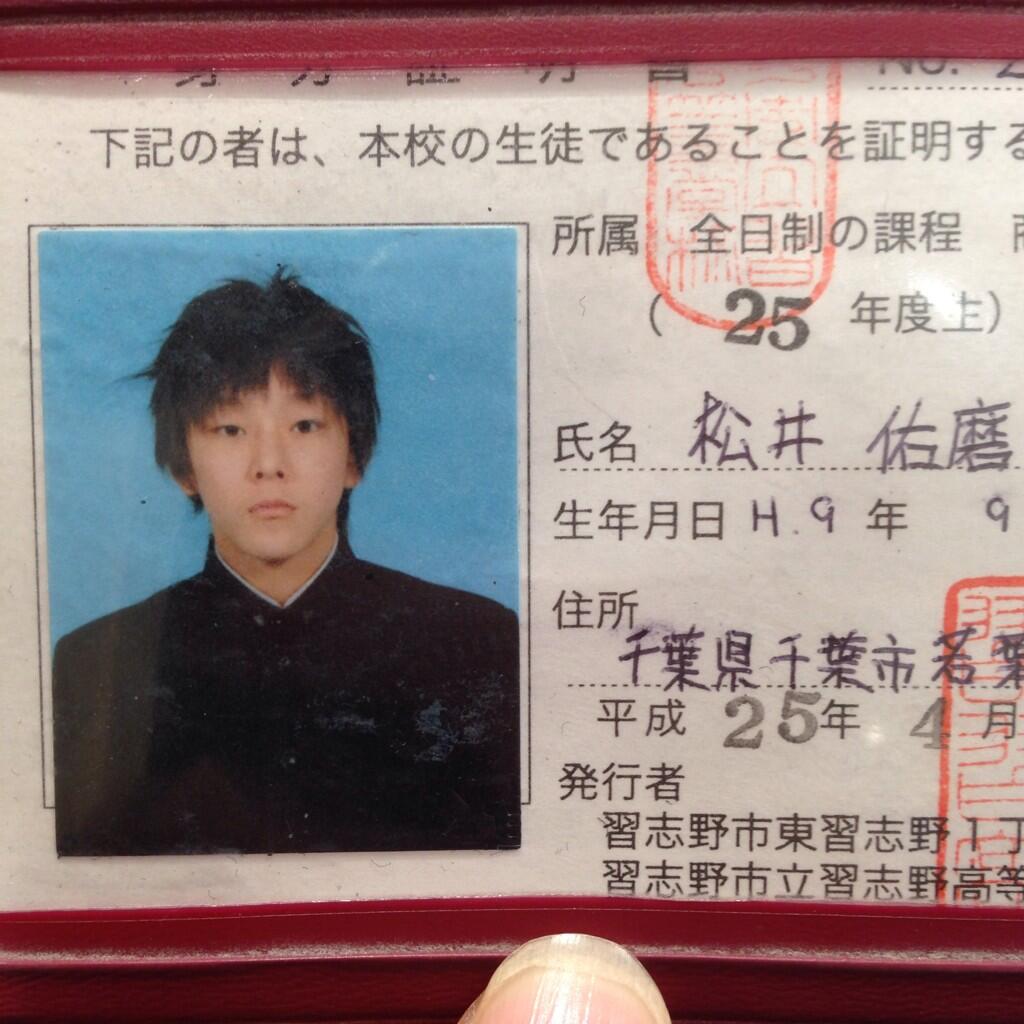 身分証明書 No. 2
下記の者は、本校の生徒であることを証明する
所属 全日制の課程 商
( 25 年度生)
氏名 松井 佑磨
生年月日 H.9 年 9
住所
千葉県千葉市若葉
平成 25年 4月
発行者
習志野市東習志野1丁
習志野市立習志野高等